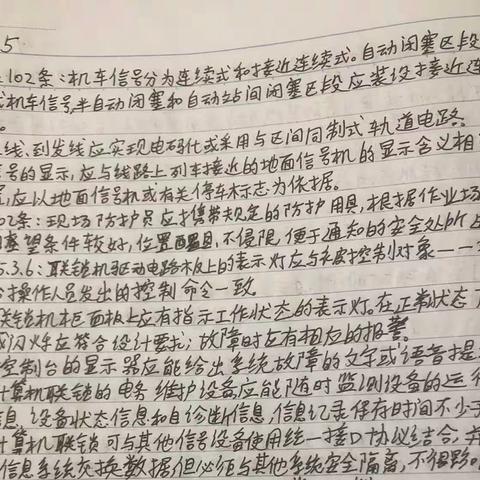 5
102条:机车信号分为连续式和接近连续式。自动闭塞区段
机车信号,半自动闭塞和自动站间闭塞区段应装设接近连
线、到发线应实现电码化或采用与区间同制式轨道电路。
号的显示,应与线路上列车接近的地面信号机的显示含义相
,应以地面信号机或有关停车标志为依据。
02条:现场防护员应携带规定的防护用具,根据作业场
瞭望条件较好,位置,不侵限,便于通知的安全处所
5.3.6:联锁机驱动电路板上的表示灯应与被控制对象一一
操作人员发出的控制命令一致
联锁机柜面板上应有指示工作状态的表示灯。在正常状态
或闪烁应符合设计要求;故障时应有相应的报警。
控制台的显示器应能给出系统故障的文字或语音提
计算机联锁的电务维护设备应能随时监测设备的运
信息、设备状态信息和自诊断信息,信息记录保存时间不少于
计算机联锁可与其他信号设备使用统一接口协议结合,
信息系统交换数据,但必须与其他系统安全隔离,不得影